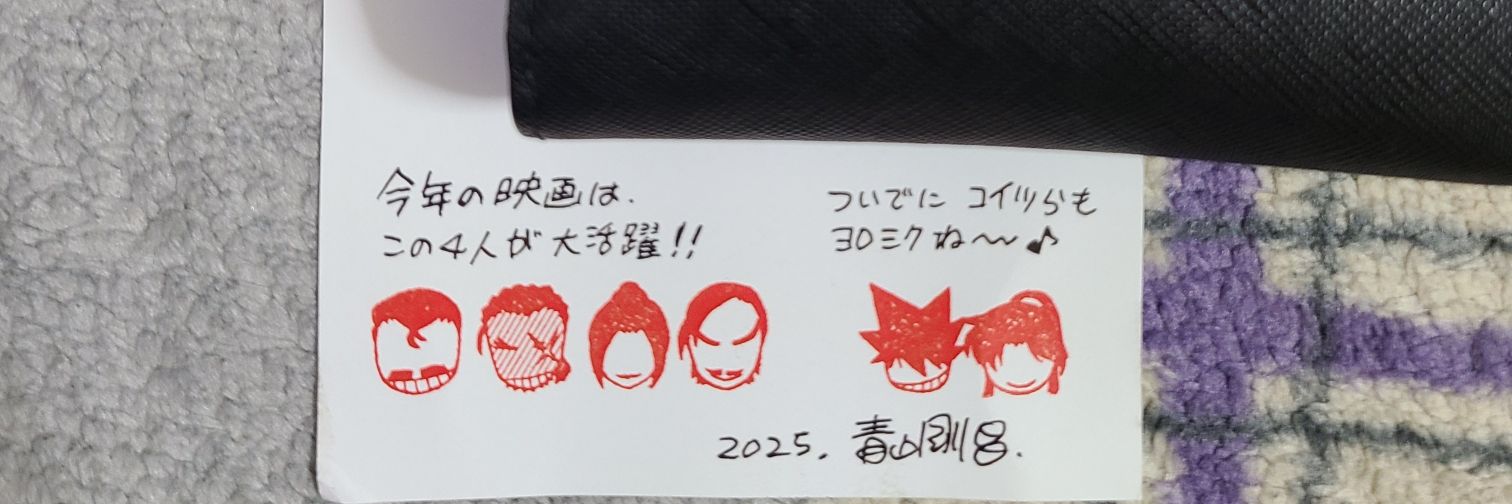 今年の映画は、
この4人が大活躍!!
ついでに コイツらも
ヨロミクね〜〜♪
2025. 青山剛昌.